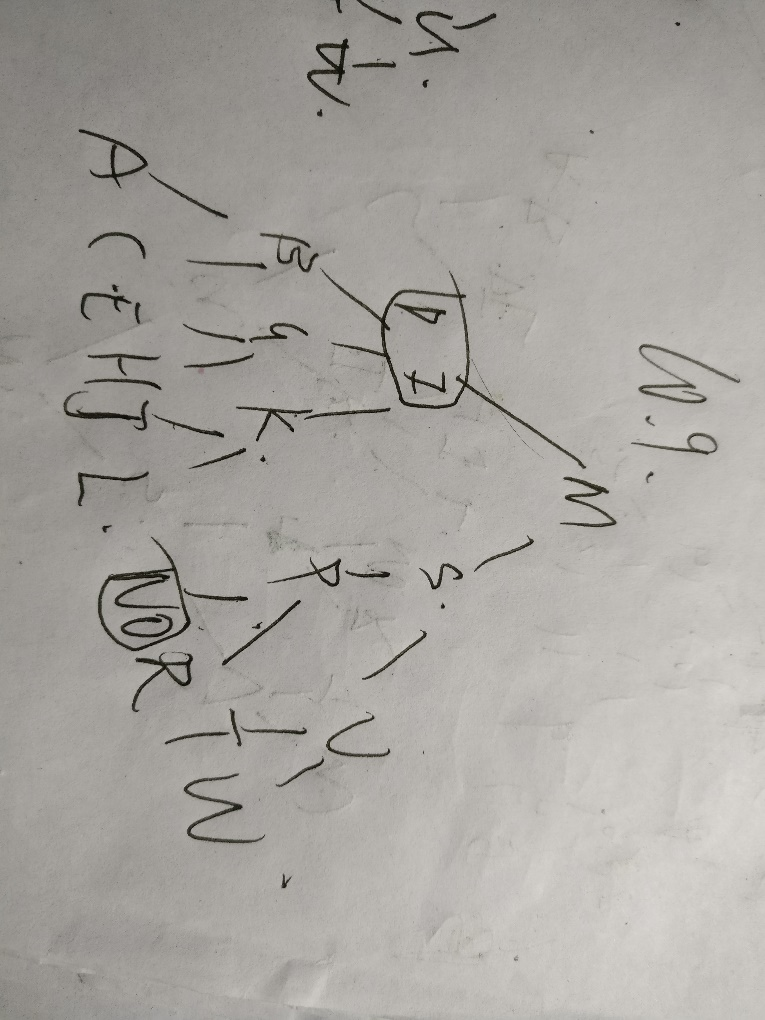 M
D I S.
B G K. P U
A C E H J L. N O R T W